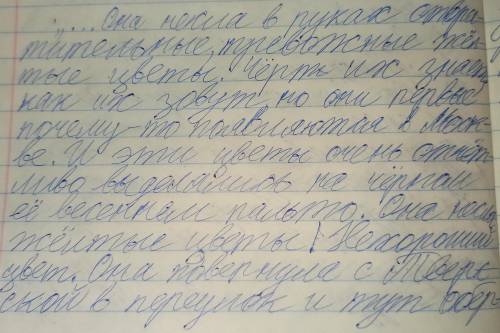 ... Она несла в руках отвра-
тительные, тревожные жёл
тые цветы. Чёрть их знает
как их зовут но они первые
почему-то появляются в Моск-
ве. И эти цветы очень отчёт-
ливо выделялись на чёрном
её весеннем пальто. Она несла
жёлтые цветы! Нехороший
цвет. Она повернула с Тверс
ской в переулок и тут обер